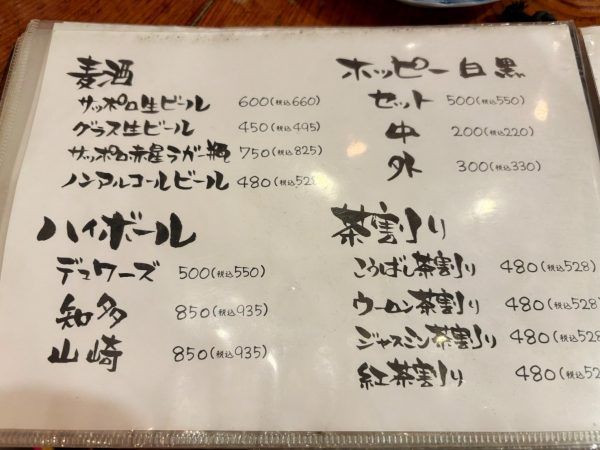 麦酒
サッポロ生ビール 600(税込660)
グラス生ビール 450(税込495)
サッポロ赤星ラガー瓶 750(税込825)
ノンアルコールビール 480(税込528
ハイボール
デュワーズ 500(税込550)
知多 850(税込935)
山崎 850(税込935)
ホッピー 白 黒
セット 500(税込550)
中 200(税込220)
外 300(税込330)
茶割り
こうばし茶割り 480(税込528)
ウーロン茶割り 480(税込528)
ジャスミン茶割り 480(税込528
紅茶割り 480(税込52